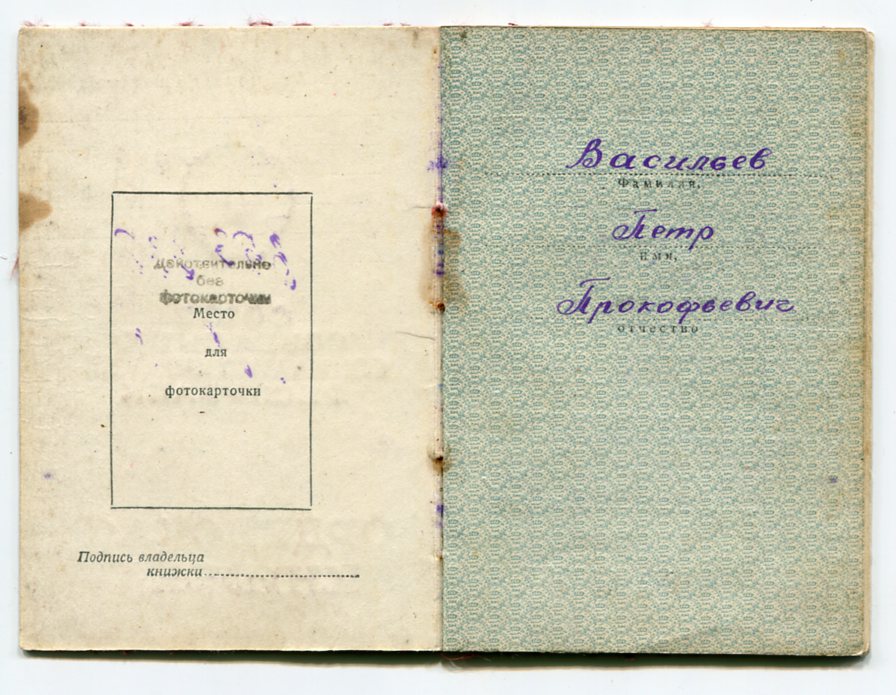 Действительно
без
фотокарточки
Место
для
фотокарточки
Подпись владельца
книжки
Васильев
Фамилия,
Петр
имя,
Прокофьевич
отчество